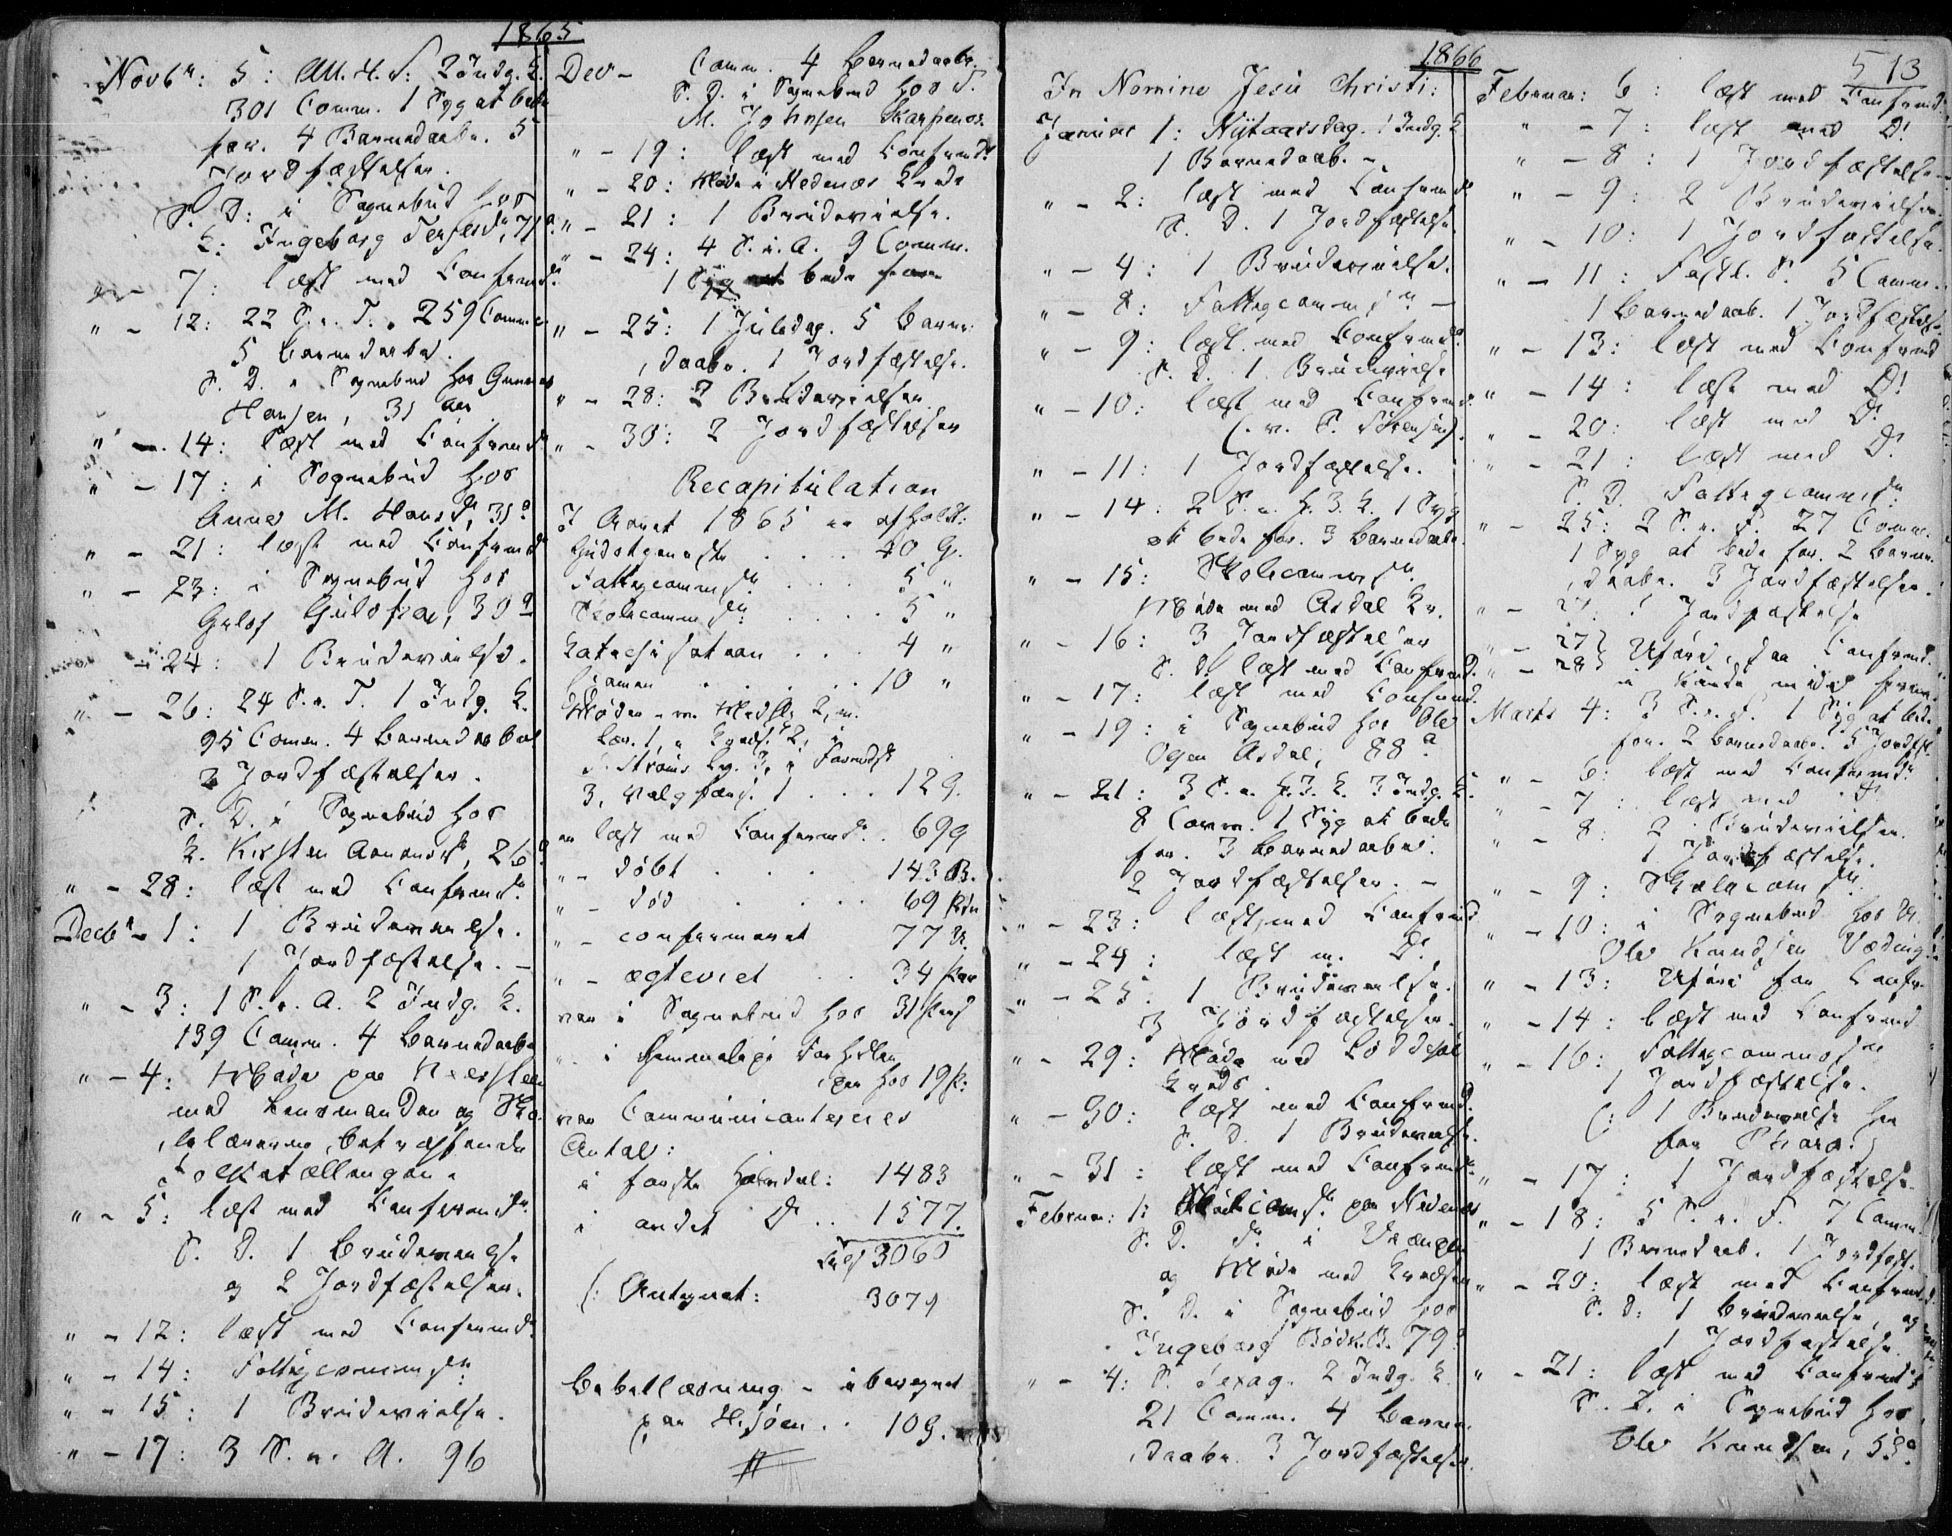 1865
Novbr: 5: All. H. S: 2 Indg. K.
301 Comm. 1 Syg at bede
for. 4 Barnedaabe. 5
Jordfæstelser.
S. D: i Sognebud hos
K. Ingeborg Terjesdr, 71 a.
7: læst med Confirmdr
" - 12: 22 S. e. T. 259 Comm.
5 Barnedaabe.
S. D. i Sognebud hos Gunder
Hansen, 31 aar
" - 14: læst med Confirmdr
" - 17: i Sognebud hos
Anne M. Hansdr, 31 a
" - 21: læst med Confirmdr
" - 23: i Sognebud hos
Gulof Gulofsen, 30 a
- 24: 1 Brudevielse.
" - 26: 24 S. e. T. 1 Indg. K.
95 Comm. 4 Barnedaabe
2 Jordfæstelser.
S. D. i Sognebud hos
K. Kirsten Aanonsdr, 26 a
" - 28: læst med Confirmdr
Decbr - 1: 1 Brudevielse.
1 Jordfæstelse. -
" - 3: 1 S. e. A. 2 Indg. K.
139 Comm. 4 Barnedaabe
" - 4: Møde paa
med Lensmanden og Sko-
lelærerne betræffende
Folketællingen.
" - 5: læst med Confirmdr
S. D. 1 Brudevielse
og 2 Jordfæstelser.
" - 12: læst med Confirmdr
" - 14: Fattigcommisn:
" - 15: 1 Brudevielse.
" - 17: 3 S. e. A. 96
Dec - Comm. 4 Barnedaabe.
S. D. i Sognebud hos S.
M. Johnsen
" - 19: læst med Confirmdr
" - 20: Møde i Nedenæs Kreds
" - 21: 1 Brudevielse.
" - 24: 4 S. i. A. 9 Comm.
1 Syg at bede for
" - 25: 1 Juledag. 5 Barne-
daabe. 1 Jordfæstelse.
" - 28: 2 Brudevielser
" - 30: 2 Jordfæstelser
Recapitulation
I Aaret 1865 er afholdt:
Gudstjeneste . . . 40 G.
Fattigcommisn . . . 5 "
Skolecommisn: . . . 5 "
Katechisation . . . 4 "
Examen . . . 10 "
Møder
3, Valgforf. 1 . . . 12 g.
er læst med Confirmdr. 69 g
" - døbt . . . 143 B.
" - død . . . 69 Psn
" - confirmeret 77 U.
" - ægteviet . . 34 Par
var i Sognebud hos 31 Pers
" i
hos 19 P:
var Communicanternes
Antal:
i første Halvdel: 1483
i andet Do . . 1577.
3060
(: Antegnet: 3079
Bibellæsning - iberegnet
paa H.søen . . 10 g.
1866
513
In Nomine Jesu Christi:
Januar 1: Nytaarsdag. 1 Indg. K
1 Barnedaab. -
" - 2: læst med Confirmdr
S. D. 1 Jordfæstelse
" - 4: 1 Brudevielse.
" - 8: Fattigcommisn -
" - 9: læst med Confirmdr
S. D. 1 Brudevielse
" - 10: læst med Confirmdr
" - 11: 1 Jordfæstelse.
" - 14: 2 S. e. H. 3. K. 1 Syg
at bede for. 3 Barnedaabe.
" - 15: Skolecommisn.
Møde med Asdal Kr.
" - 16: 3 Jordfæstelser
S. D. læst med Confirmd.
" - 17: læst med Confirmd.
" - 19: i Sognebud hos Ole
Olsen Asdal, 88 a
" - 21: 3 S. e. H. 3. K. 3 Indg. K.
8 Comm. 1 Syg at bede
for. 3 Barnedaabe.
2 Jordfæstelser. -
" - 23: læst med Confirmd
" - 24: læst m. Do.
" - 25: 1 Brudevielse.
3 Jordfæstelser.
" - 29: Møde med Løddesøl
Kreds.
" - 30: læst med Confirmd.
S. D. 1 Brudevielse.
" - 31: læst med Confirmdr.
Februar: 1: Skolecomsn. paa Nedenæs
S. D. Do i
og Møde med Kredsen
S. D. i Sognebud hos
Ingeborg Bødk.B. 79 a
" - 4: S. Sexag. 2 Indg. K.
21 Comm. 4 Barne-
daabe. 3 Jordfæstelser
Februar: 6: læst med Confirmdr
" - 7: læst med Do
" - 8: 1 Jordfæstelse
" - 9: 2 Brudevielser.
" - 10: 1 Jordfæstelse.
" - 11: Fastl. S. 5 Comm.
1 Barnedaab. 1 Jordfæstelse
" - 13: læst med Confirmd
" - 14: læst med Do
" - 20: læst med Do
" - 21: læst med Do
S. D. Fattigcommisn:
" - 25: 2 S. e. F. 27 Comm.
1 Syg at bede for. 2 Barne-
daabe. 3 Jordfæstelser.
1 Jordfæstelse
" - 27 } Uføre, saa Confirmd.
" - 28 } ei kunde møde frem
Marts 4: 3 S. e. F. 1 Syg at bede
for. 2 Barnedaabe. 5 Jordfst.
" - 6: læst med Confirmdr
" - 7: læst med Do
" - 8: 2 Brudevielser.
1 Jordfæstelse.
" - 9: Skolecomsn.
" - 10: i Sognebud hos U.
Ole Knudsen
" - 13: Uføre for Confr.
" - 14: læst med Confirmd
" - 16: Fattigcommisn
1 Jordfæstelse.
(: 1 Brudevielse her
for
" - 17: 1 Jordfæstelse.
" - 18: 5 S. e. F. 7 Comm.
1 Barnedaab. 1 Jordfæst.
" - 20: læst med Confirmd.
S. D: 1 Brudevielse, og
1 Jordfæstelse
" - 21: læst med Confirmdr
S. D. i Sognebud hos
Ole Knudsen, 53 a.